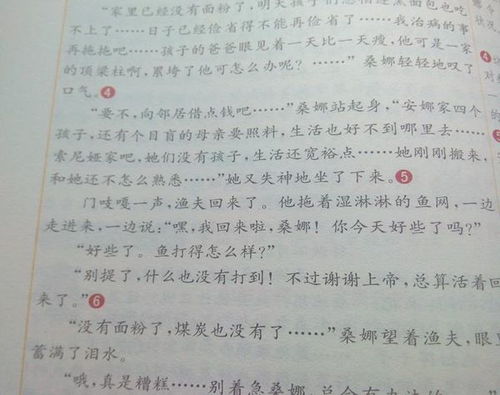 “家里已经没有面粉了，明天孩子们恐怕连黑面包也吃
不上了……日子已经俭省得不能再俭省了……我治病的事
再拖拖吧……孩子的爸爸眼见着一天比一天瘦，他可是一家
的顶梁柱啊，累垮了他可怎么办呢？……”桑娜轻轻地叹了
口气。④
“要不，向邻居借点钱吧……”桑娜站起身，“安娜家四个
孩子，还有个目盲的母亲要照料，生活也好不到哪里去……
索尼娅家吧，她们没有孩子，生活还宽裕点……她刚刚搬来，
和她还不怎么熟悉……”她又失神地坐了下来。⑤
门吱嘎一声，渔夫回来了。他拖着湿淋淋的鱼网，一边
走进来，一边说：“嘿，我回来啦，桑娜！你今天好些了吗？”
“好些了。鱼打得怎么样？”
“别提了，什么也没有打到！不过谢谢上帝，总算活着回
来了。”⑥
“没有面粉了，煤炭也没有了……”桑娜望着渔夫，眼里
蓄满了泪水。
“哦，真是糟糕……别着急桑娜，总会有办法的
④
对
⑤